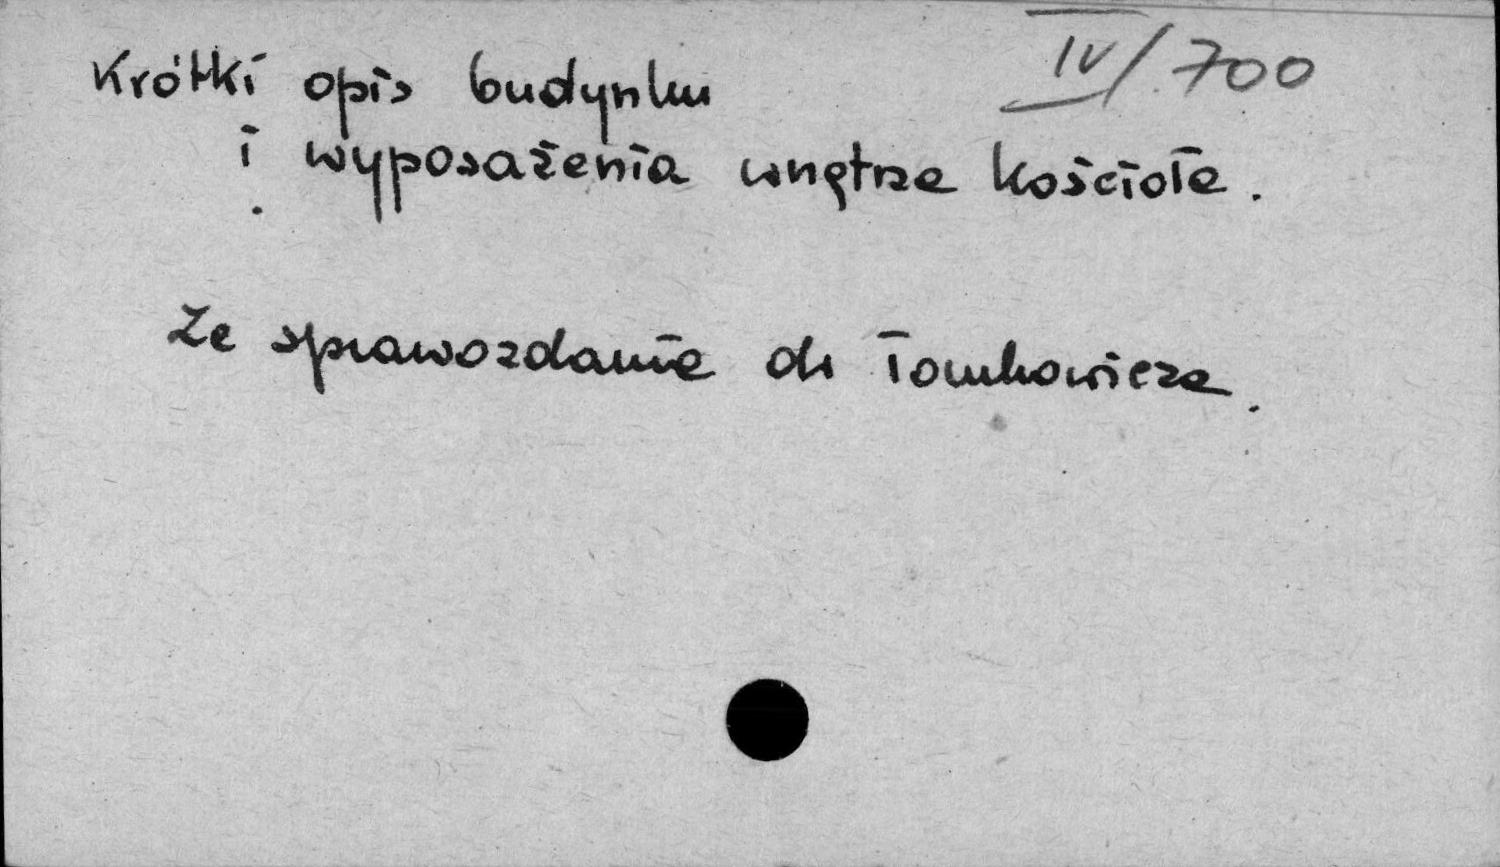 IV/700
Krótki opis budynku
i wyposażenia wnętrza kościoła.
Ze sprawozdania dr Tomkowicza.